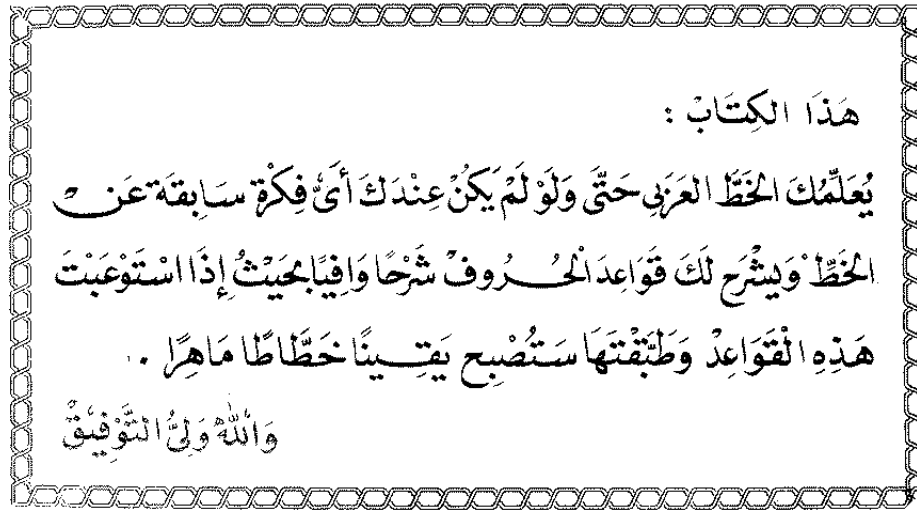 هَذَا الكِتَابْ :
يُعَلِّمُكَ الخَطَّ العَرَبِي حَتَّى وَلَوْ لَمْ يَكُنْ عِنْدَكَ أَىُّ فِكْرَة سَابِقَة عَنْ
الخَطِّ وَيَشْرَح لَكَ قَوَاعِدَ الْحُرُوفْ شَرْحًا وَافِيًا بِحَيْثُ إِذَا اسْتَوْعَبْتَ
هَذِهِ الْقَوَاعِدْ وَطَبَّقْتَهَا سَتُصْبِح يَقِينًا خَطَّاطًا مَاهِرًا .
وَاللَّهُ وَلِىُّ التَّوْفِيقْ